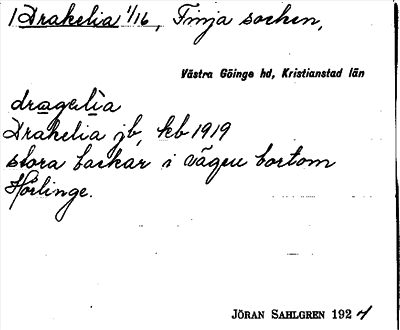 1 Drakelia 1/16, Finja socken,
Västra Göinge hd, Kristianstad län
dragelia
Drakelia jb, kb 1919
stora backar i vägen bortom
Hörlinge.
JÖRAN SAHLGREN 1924